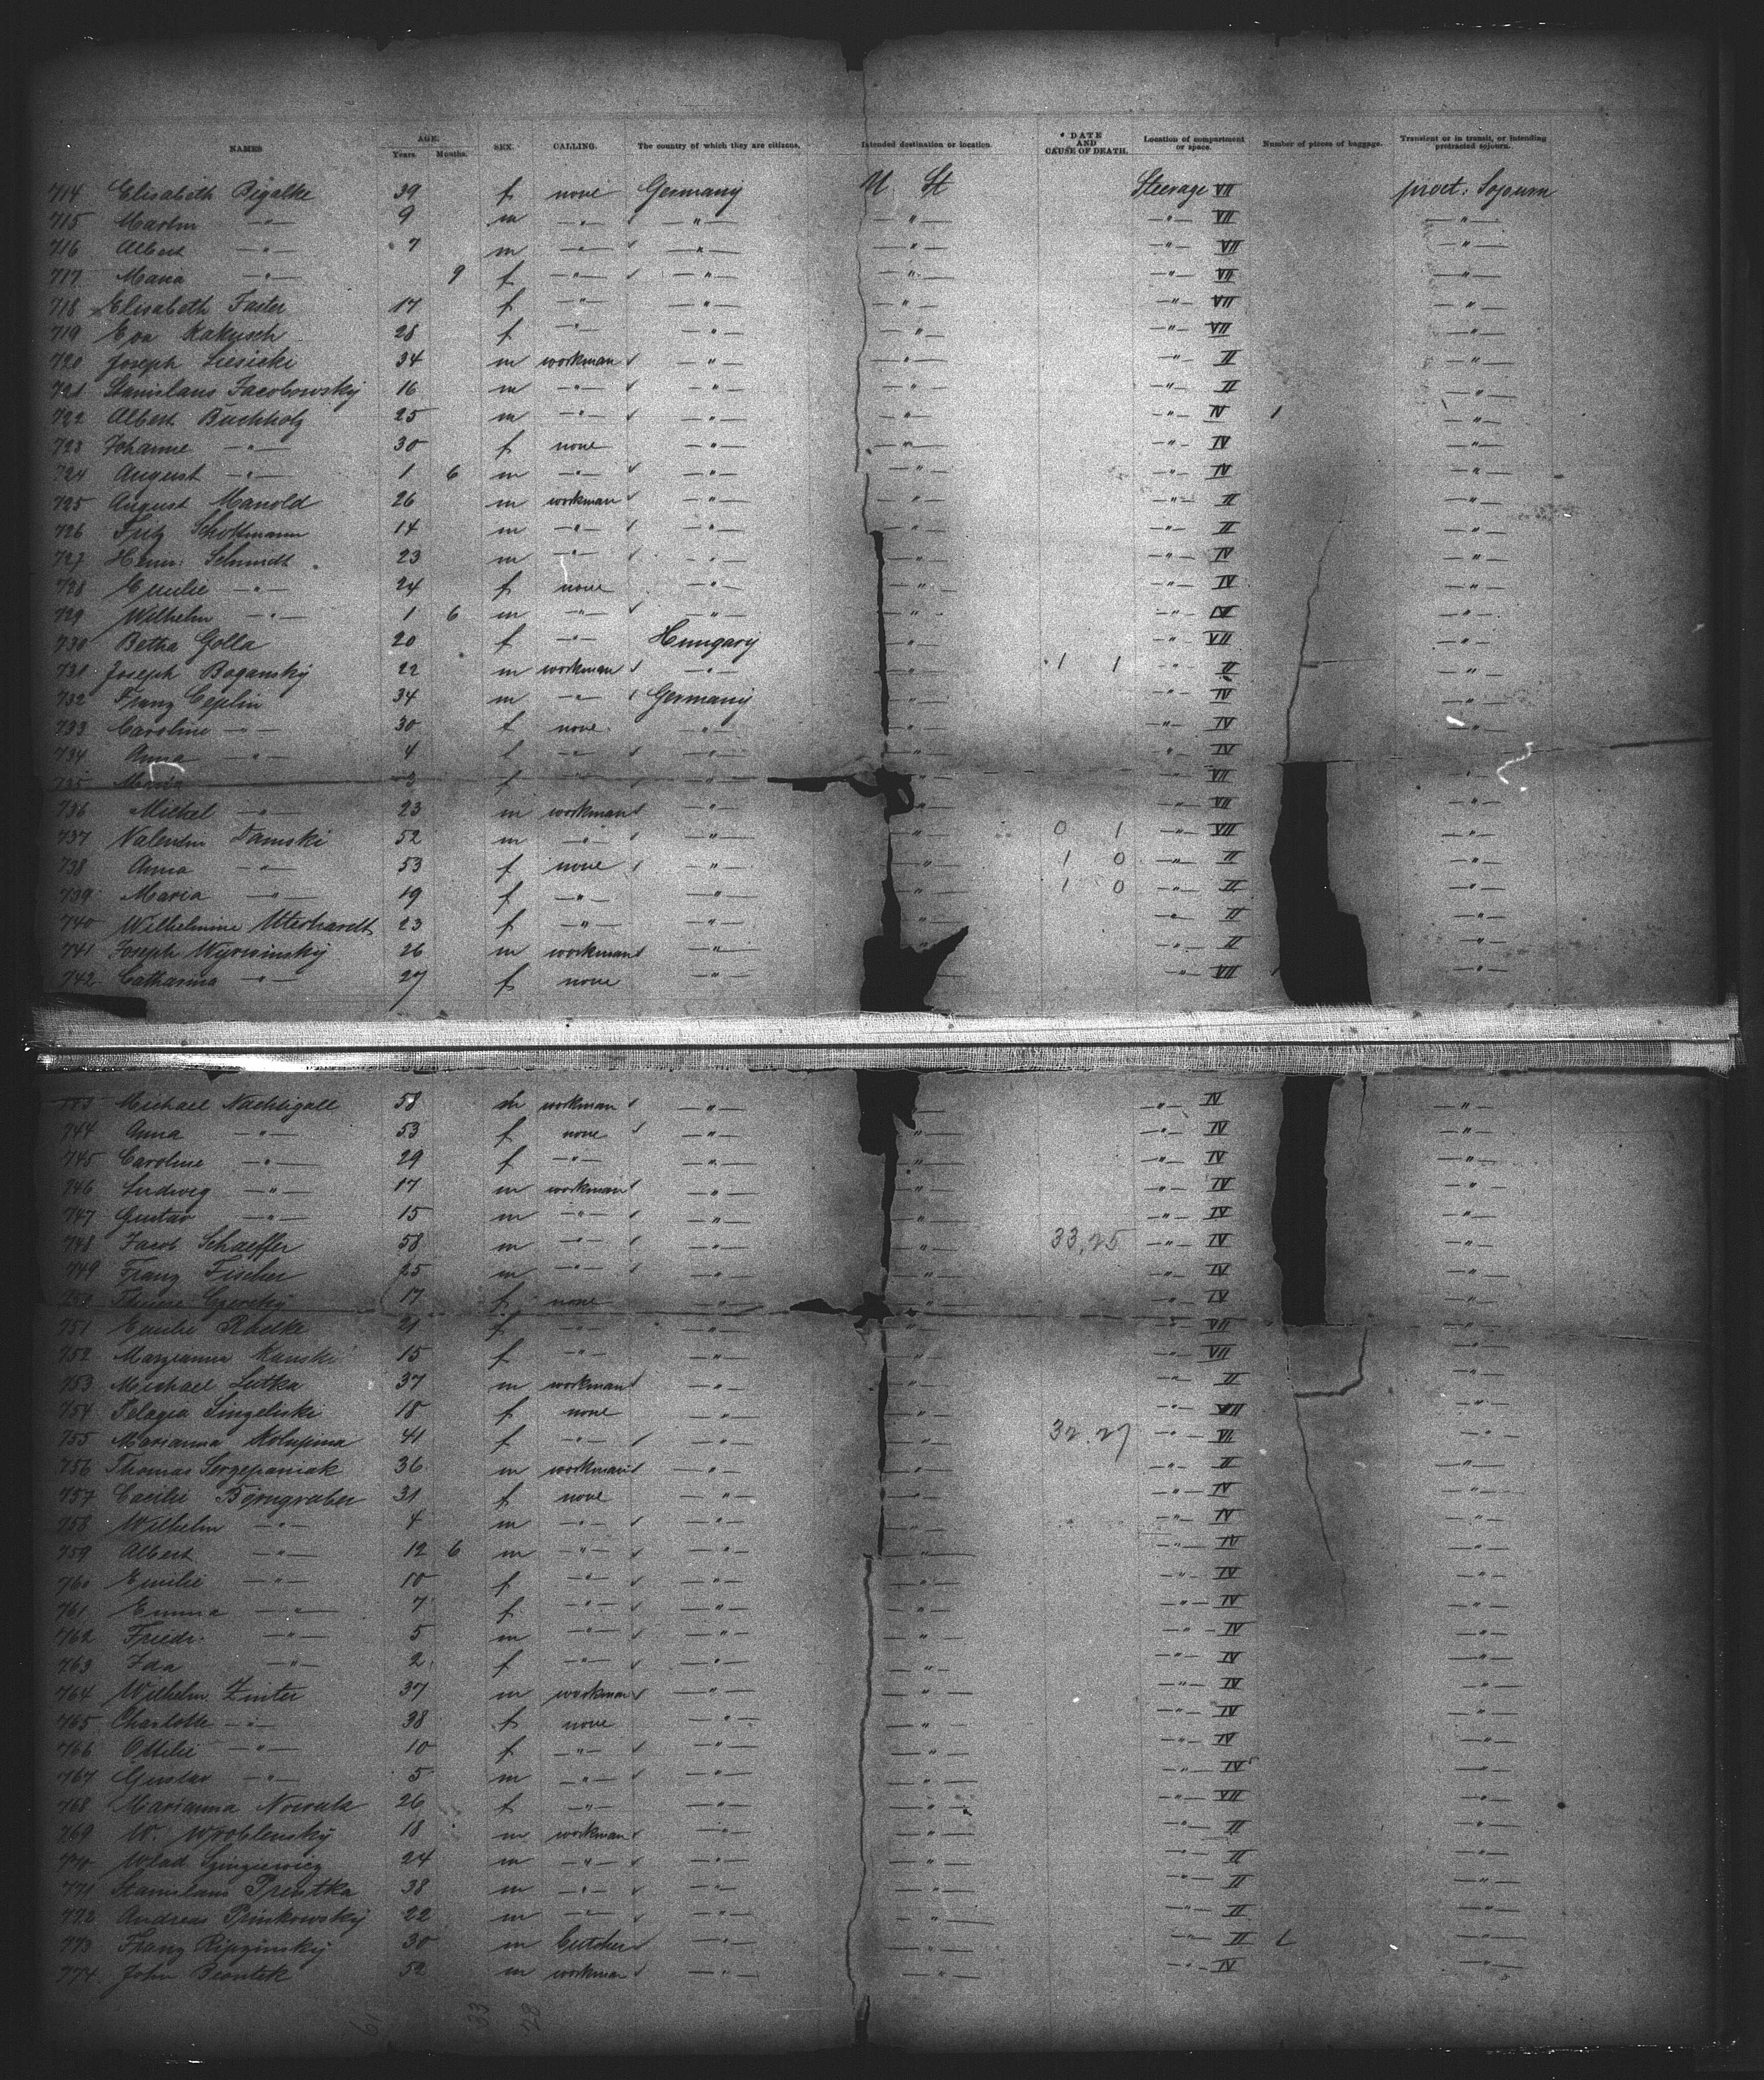 NAMES AGE. Years. Months. SEX. CALLING. The country of which they are citizens. Intended destination or location. DATE AND CAUSE OF DEATH. Location of compartment or space. Number of pieces of baggage. Transient or in transit, or intending protracted sojourn.
714 Elisabeth Pigalke 39 f none Germany U. St Steerage VII prot: Sojourn
715 Martin —"— 9 m —"— —"— —"— —"— VII —"—
716 Albert —"— 7 m —"— —"— —"— —"— VII —"—
717 Maria —"— 9 f —"— —"— —"— —"— VII —"—
718 Elisabeth Faster 17 f —"— —"— —"— —"— VII —"—
719 Eva Kakusch 28 f —"— —"— —"— —"— VII —"—
720 Joseph 34 m workman —"— —"— —"— II —"—
721 Stanislaus Jacobowsky 16 m —"— —"— —"— —"— II —"—
722 Albert Buchholz 25 m —"— —"— —"— —"— IV 1 —"—
723 Johanne —"— 30 f none —"— —"— —"— IV —"—
724 August —"— 1 6 m —"— —"— —"— —"— IV —"—
725 August Manold 26 m workman —"— —"— II —"—
726 Fritz Schottmann 14 m —"— —"— —"— II —"—
727 Henr: Schmidt 23 m —"— —"— —"— —"— IV —"—
728 Emilie —"— 24 f none —"— —"— —"— IV —"—
729 Wilhelm —"— 1 6 m —"— —"— —"— —"— IV —"—
730 Betha Golla 20 f —"— Hungary —"— —"— VII —"—
731 Joseph Boganský 22 m workman —"— —"— 1 1 —"— II —"—
732 Franz Ceplin 34 m —"— Germany —"— —"— IV —"—
733 Caroline —"— 30 f none —"— —"— —"— IV —"—
734 Anna —"— 4 f —"— —"— —"— —"— IV —"—
735 Maria 3 f —"— —"— —"— VII —"—
736 Michel —"— 23 m workman —"— —"— —"— VII —"—
737 Valentin Damski 52 m —"— —"— —"— 0 1 —"— VII —"—
738 Anna —"— 53 f none —"— —"— 1 0 —"— II —"—
739 Maria —"— 19 f —"— —"— —"— 1 0 —"— II —"—
740 Wilhelmine Utterhardt 23 f —"— —"— —"— —"— II —"—
741 Joseph 26 m workman —"— —"— —"— II —"—
742 Catharina —"— 27 f none —"— —"— VII —"—
743 Michael Nachtigall 58 m workman —"— —"— IV —"—
744 Anna —"— 53 f none —"— —"— —"— IV —"—
745 Caroline —"— 29 f —"— —"— —"— —"— IV —"—
746 Ludwig —"— 17 m workman —"— —"— —"— IV —"—
747 Gustav —"— 15 m —"— —"— —"— —"— IV —"—
748 Jacob Schaeffer 58 m —"— —"— —"— 33,25 —"— IV —"—
749 Franz Fischer 25 m —"— —"— —"— —"— IV —"—
750 Czersky 17 f none —"— —"— —"— IV —"—
751 Emilie Radke 21 f —"— —"— —"— —"— VII —"—
752 Maryanna Kanski 15 f —"— —"— —"— —"— VII —"—
753 Michael Lutka 37 m workman —"— —"— —"— II —"—
754 Pelagia 18 f none —"— —"— —"— VII —"—
755 Marianna 41 f —"— —"— —"— 32.27 —"— VII —"—
756 Thomas 36 m workman —"— —"— —"— II —"—
757 Cacilie 31 f none —"— —"— —"— IV —"—
758 Wilhelm —"— 4 m —"— —"— —"— —"— IV —"—
759 Albert —"— 12 6 m —"— —"— —"— —"— IV —"—
760 Emilie —"— 10 f —"— —"— —"— —"— IV —"—
761 Emma —"— 7 f —"— —"— —"— —"— IV —"—
762 Friedr. —"— 5 m —"— —"— —"— —"— IV —"—
763 Ida —"— 2 f —"— —"— —"— —"— IV —"—
764 Wilhelm Zinter 37 m workman —"— —"— —"— IV —"—
765 Charlotte —"— 38 f none —"— —"— —"— IV —"—
766 Ottilie —"— 10 f —"— —"— —"— —"— IV —"—
767 Gustav —"— 5 m —"— —"— —"— —"— IV —"—
768 Marianna 26 f —"— —"— —"— —"— VII —"—
769 W. Wroblensky 18 m workman —"— —"— —"— II —"—
770 Wlad. 24 m —"— —"— —"— —"— II —"—
771 Stanislaus 38 m —"— —"— —"— —"— II —"—
772 Andreas 22 m —"— —"— —"— —"— II —"—
773 Franz 30 m Butcher —"— —"— —"— II —"—
774 John 52 m workman —"— —"— —"— IV —"—
61 33 28